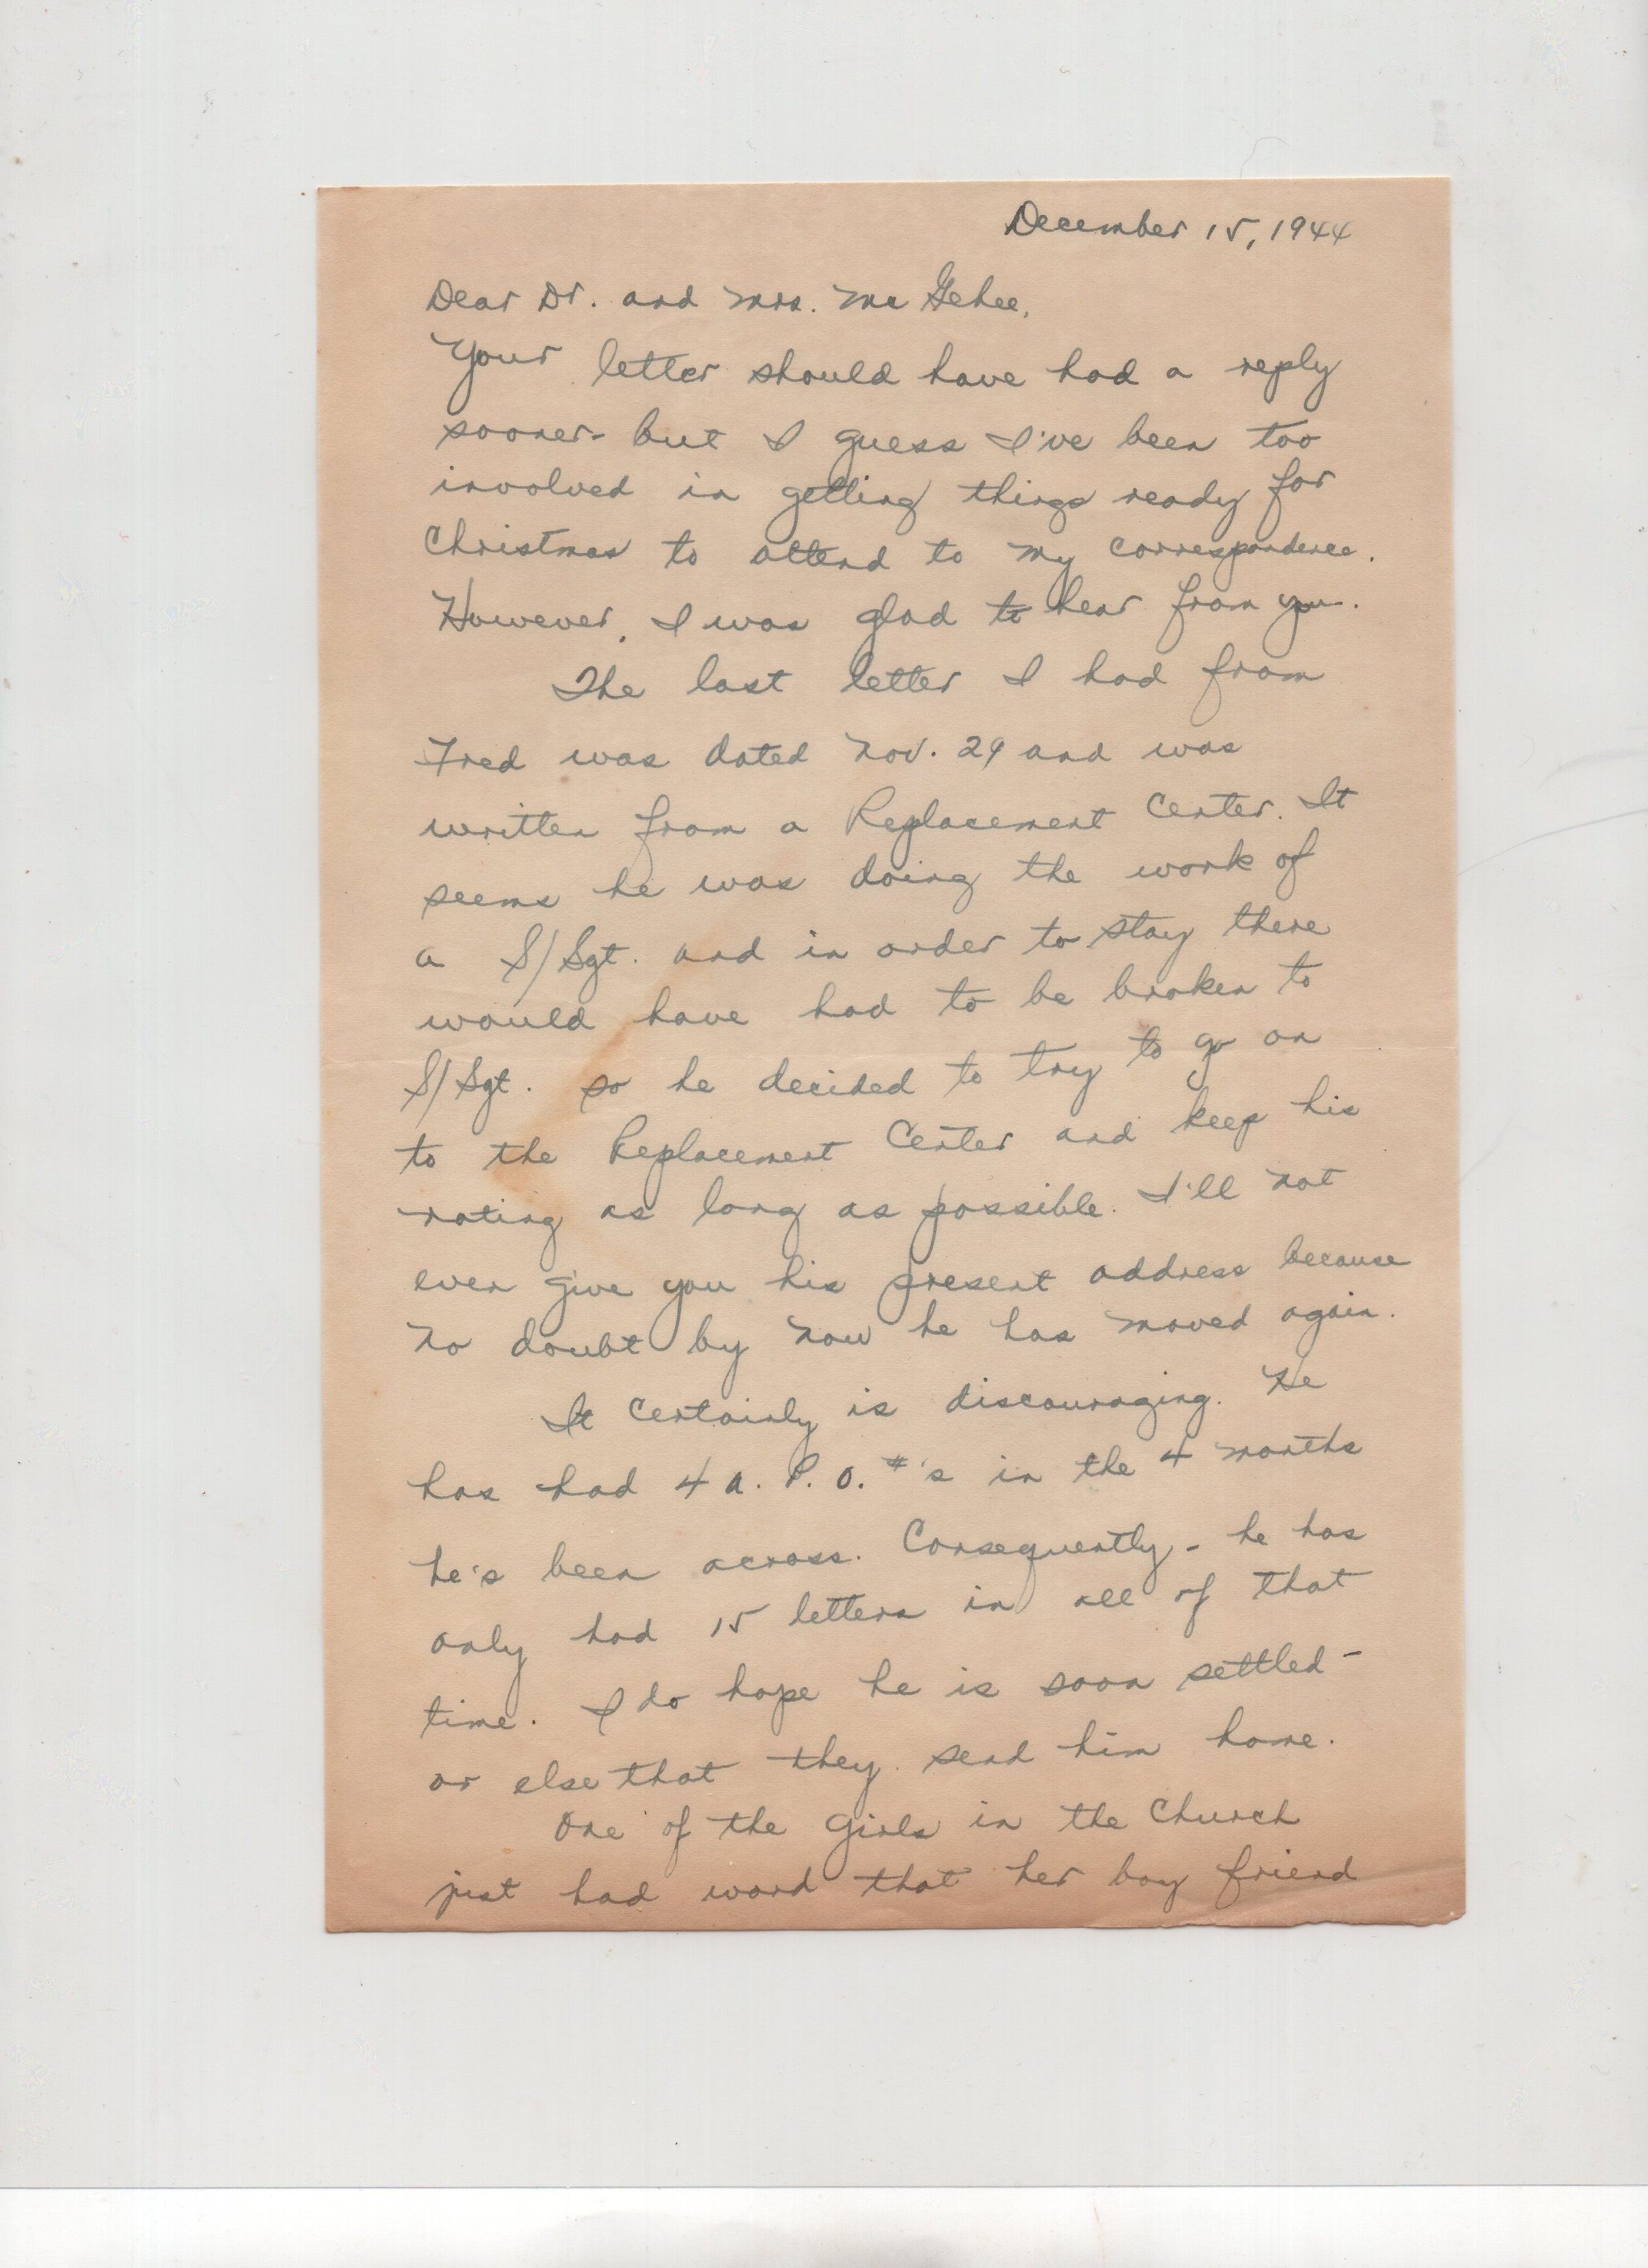 December 15, 1944
Dear Dr. and Mrs. Mc Gehee,
Your letter should have had a reply
sooner - but I guess I've been too
involved in getting things ready for
Christmas to attend to my correspondence.
However, I was glad to hear from you.
The last letter I had from
Fred was dated Nov. 29 and was
written from a Replacement Center. It
seems he was doing the work of
a S/Sgt. and in order to stay there
would have had to be broken to
S/Sgt. so he decided to try to go on
to the Replacement Center and keep his
rating as long as possible. I'll not
even give you his present address because
no doubt by now he has moved again.
It certainly is discouraging. He
has had 4 A. P. O. #'s in the 4 months
he's been across. Consequently - he has
only had 15 letters in all of that
time. I do hope he is soon settled -
or else that they send him home.
One of the girls in the Church
just had word that her boy friend